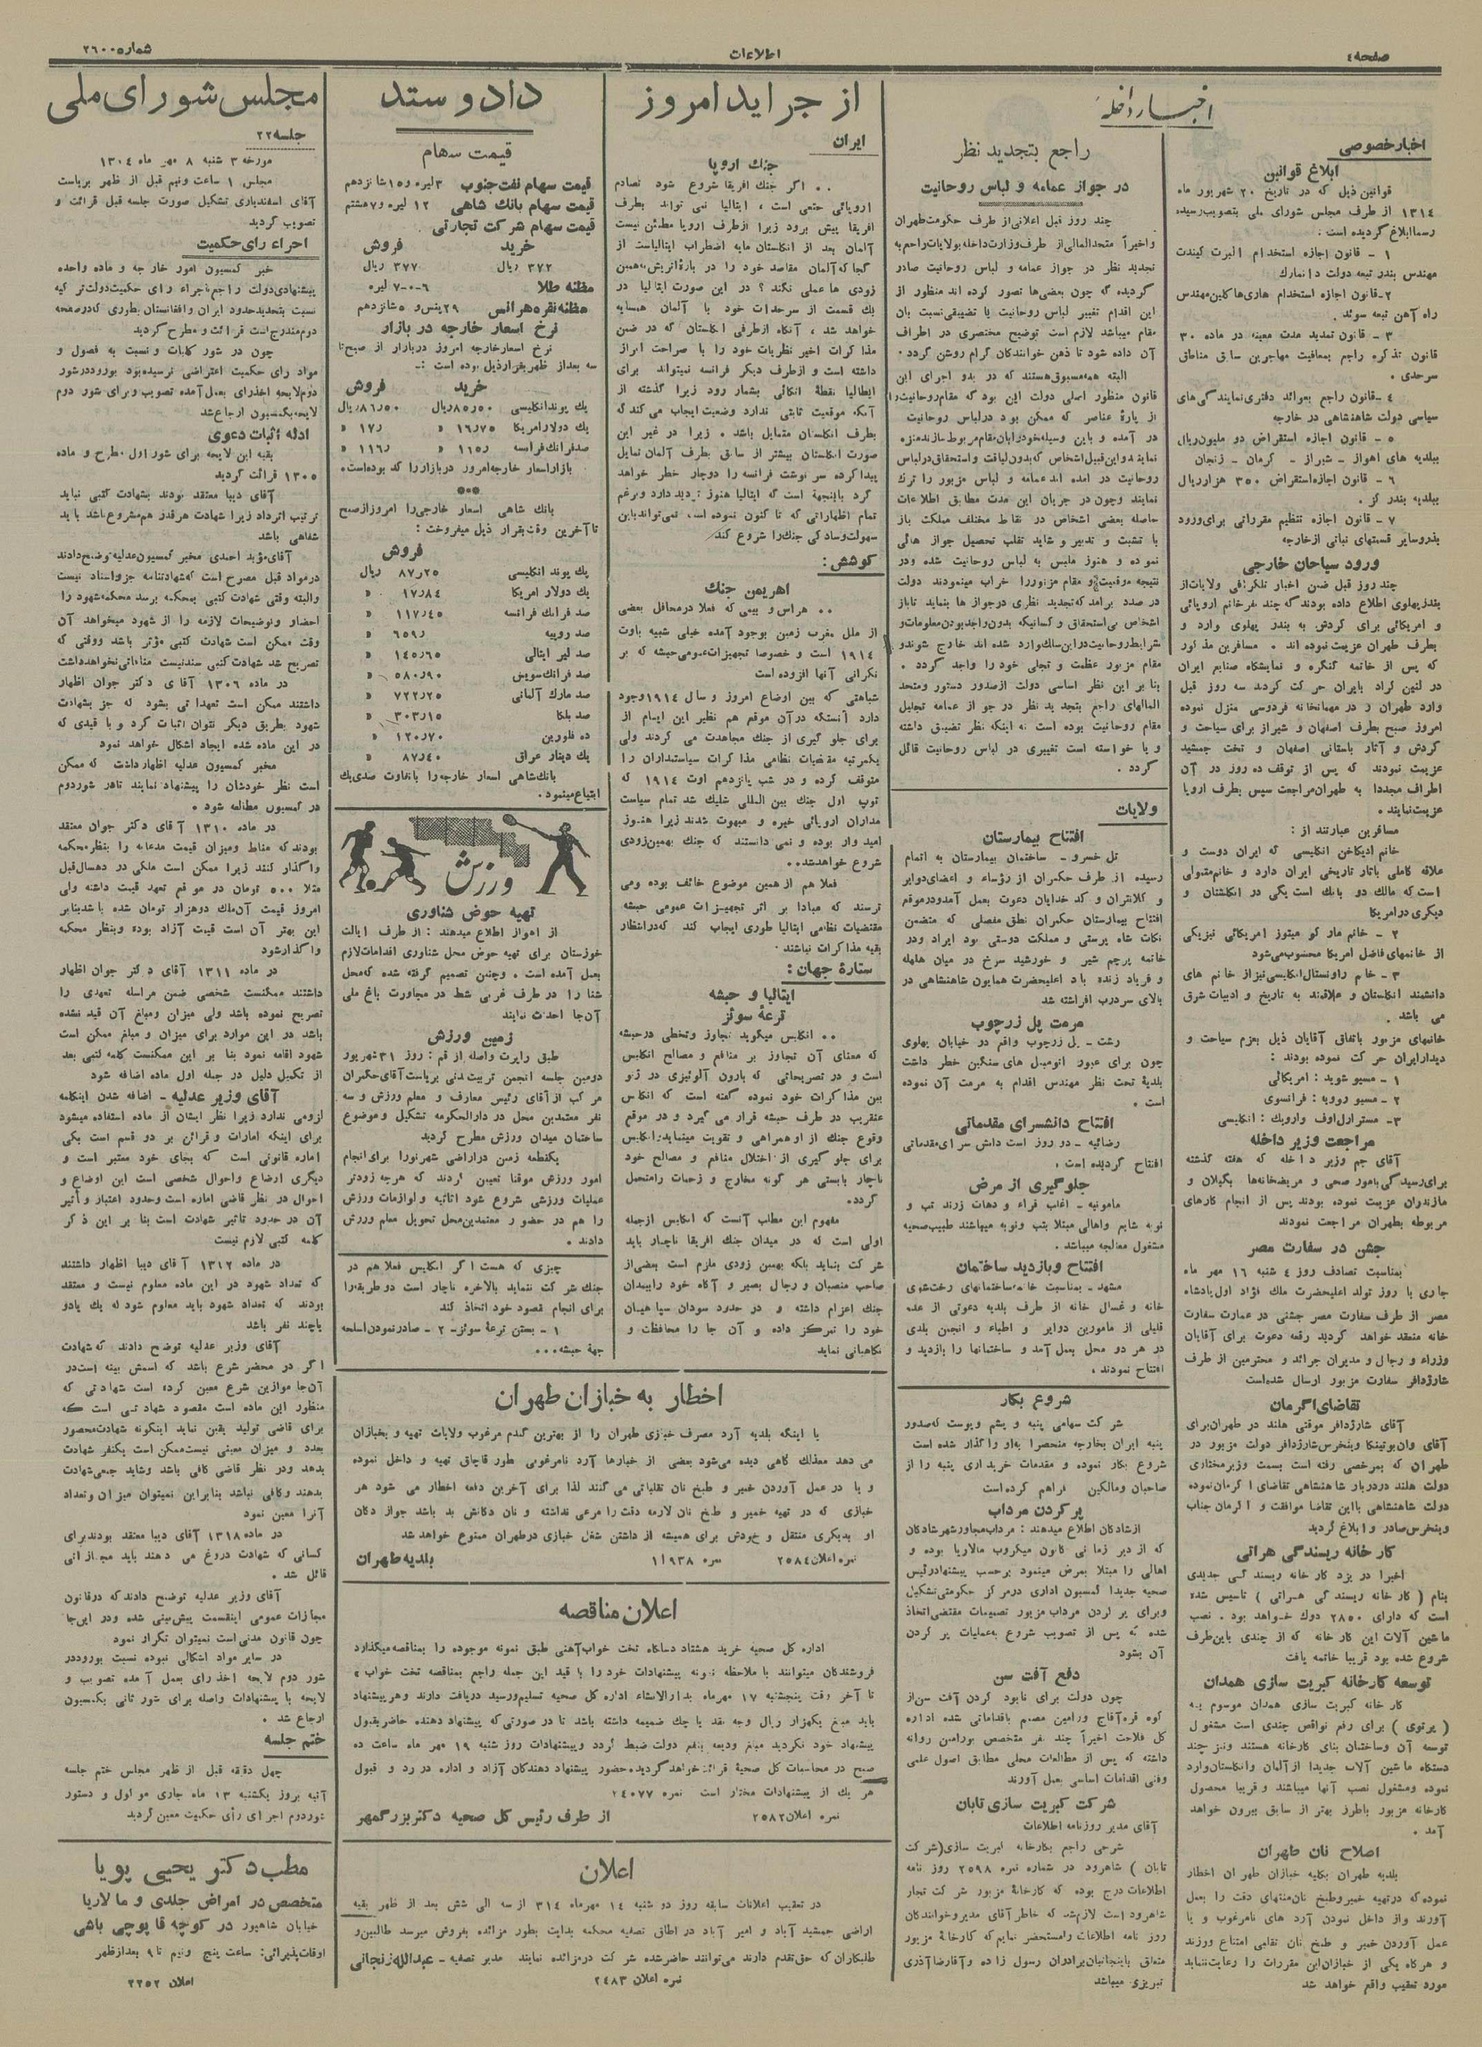 صفحه٤
اطلاعات
شماره ۲٦۰۰
اخبار داخله
اخبار خصوصی
ابلاغ قوانین
قوانین ذیل که در تاریخ ۲۰ شهریور ماه
۱۳۱٤ از طرف مجلس شورای ملی بتصویب رسیده
رسما ابلاغ گردیده است :
۱ - قانون اجازه استخدام البرت کیندت
مهندس بندر تبعه دولت دانمارک
۲-قانون اجازه استخدام هاری‌ها کلین مهندس
راه آهن تبعه سوئد .
۳ - قانون تمدید مدت معینه در ماده ۳۰
قانون تذکره راجع بمعافیت مهاجرین سابق مناطق
سرحدی .
٤ -قانون راجع بعوائد دفتری نمایندگی‌های
سیاسی دولت شاهنشاهی در خارجه
٥ - قانون اجازه استقراض دو ملیون ریال
ببلدیه های اهواز - شیراز - کرمان - زنجان
٦ - قانون اجازه استقراض ۳٥۰ هزار ریال
ببلدیه بندر گز .
۷ - قانون اجازه تنظیم مقرراتی برای ورود
بذر و سایر قسمتهای نباتی از خارجه
ورود سیاحان خارجی
چند روز قبل ضمن اخبار تلگرافی ولایات از
بندر پهلوی اطلاع داده بودند که چند نفر خانم اروپائی
و امریکائی برای گردش به بندر پهلوی وارد و
بطرف طهران عزیمت نموده اند . مسافرین مذکور
که پس از خاتمه کنگره و نمایشگاه صنایع ایران
در لنین گراد بایران حرکت کردند سه روز قبل
وارد طهران و در مهمانخانه فردوسی منزل نموده
امروز صبح بطرف اصفهان و شیراز برای سیاحت و
گردش و آثار باستانی اصفهان و تخت جمشید
عزیمت نمودند که پس از توقف ده روز در آن
اطراف مجددا به طهران مراجعت سپس بطرف اروپا
عزیمت نمایند .
مسافرین عبارتند از :
خانم ادیکاخن انگلیسی که ایران دوست و
علاقه کاملی باثار تاریخی ایران دارد و خانم متمولی
است که مالک دو بانک است یکی در انگلستان و
دیگری در امریکا
۲ - خانم مار کو میتوز امریکائی نیز یکی
از خانمهای فاضل امریکا محسوب می‌شود
۳ - خانم راونستال انگلیسی نیز از خانم های
دانشمند انگلستان و علاقمند به تاریخ و ادبیات شرق
می باشد .
خانمهای مزبور باتفاق آقایان ذیل بعزم سیاحت و
دیدار ایران حرکت نموده بودند :
۱ - مسیو شوید : امریکائی
۲ - مسیو روویه : فرانسوی
۳- مسترارل اوف وارویک : انگلیسی
مراجعت وزیر داخله
آقای جم وزیر داخله که هفته گذشته
برای رسیدگی بامور صحی و مریضخانه‌ها بگیلان و
مازندران عزیمت نموده بودند پس از انجام کارهای
مربوطه بطهران مراجعت نمودند
جشن در سفارت مصر
بمناسبت تصادف روز ٤ شنبه ۱٦ مهر ماه
جاری با روز تولد اعلیحضرت ملک فؤاد اول پادشاه
مصر از طرف سفارت مصر جشنی در عمارت سفارت
خانه منعقد خواهد گردید رقعه دعوت برای آقایان
وزراء و رجال و مدیران جرائد و محترمین از طرف
شارژدافر سفارت مزبور ارسال شده است
تقاضای اگرمان
آقای شارژدافر موقتی هلند در طهران برای
آقای وان بوتینکا وینخرس شارژدافر دولت مزبور در
طهران که بمرخصی رفته است بسمت وزیر مختاری
دولت هلند در دربار شاهنشاهی تقاضای اگرمان نموده
دولت شاهنشاهی با این تقاضا موافقت و اگرمان جناب
وینخرس صادر و ابلاغ گردید
کارخانه ریسندگی هراتی
اخیرا در یزد کارخانه ریسندگی جدیدی
بنام ( کارخانه ریسندگی هراتی ) تاسیس شده
است که دارای ۲۸٥۰ دوک خواهد بود . نصب
ماشین آلات این کارخانه که از چندی باین طرف
شروع شده بود قریبا خاتمه یافت
توسعه کارخانه کبریت سازی همدان
کارخانه کبریت سازی همدان موسوم به
( پرتوی ) برای رفع نواقص چندی است مشغول
توسعه آن و ساختمان بنای کارخانه هستند و نیز چند
دستگاه ماشین آلات جدیدا از آلمان و انگلستان وارد
نموده و مشغول نصب آنها میباشند و قریبا محصول
کارخانه مزبور باطرز بهتر از سابق بیرون خواهد
آمد .
اصلاح نان طهران
بلدیه طهران بکلیه خبازان طهران اخطار
نموده که در تهیه خمیر و طبخ نان منتهای دقت را بعمل
آورند و از داخل نمودن آرد های نامرغوب و یا
عمل آوردن خمیر و طبخ نان تقلبی امتناع ورزند
و هرگاه یکی از خبازان این مقررات را رعایت ننماید
مورد تعقیب واقع خواهد شد
راجع بتجدید نظر
در جواز عمامه و لباس روحانیت
چند روز قبل اعلانی از طرف حکومت طهران
و اخیراً متحدالمالی از طرف وزارت داخله بولایات راجع به
تجدید نظر در جواز عمامه و لباس روحانیت صادر
گردیده که چون بعضی‌ها تصور کرده اند منظور از
این اقدام تغییر لباس روحانیت یا تضییقی نسبت بان
مقام میباشد لازم است توضیح مختصری در اطراف
آن داده شود تا ذهن خوانندگان گرام روشن گردد .
البته همه مسبوق هستند که در بدو اجرای این
قانون منظور اصلی دولت این بود که مقام روحانیت را
از پارهٔ عناصر که ممکن بود در لباس روحانیت
در آمده و باین وسیله خود را بان مقام مربوط سازند منزه
نمایند و این قبیل اشخاص که بدون لیاقت و استحقاق در لباس
روحانیت در آمده اند عمامه و لباس مزبور را ترک
نمایند و چون در جریان این مدت مطابق اطلاعات
حاصله بعضی اشخاص در نقاط مختلف مملکت باز
با تشبث و تدبیر و شاید تقلب تحصیل جواز هائی
نموده و هنوز ملبس به لباس روحانیت شده و در
نتیجه موقعیت و مقام مزبور را خراب مینمودند دولت
در صدد برآمد که تجدید نظری در جواز ها بنماید تا باز
اشخاص بی استحقاق و کسانیکه بدون واجد بودن معلومات و
شرایط روحانیت در این سلک وارد شده اند خارج شوند و
مقام مزبور عظمت و تجلی خود را واجد گردد .
بنا بر این نظر اساسی دولت از صدور دستور و متحد
المالهای راجع بتجدید نظر در جواز عمامه تجلیل
مقام روحانیت بوده است نه اینکه نظر تضییق داشته
و یا خواسته است تغییری در لباس روحانیت قائل
گردد .
ولایات
افتتاح بیمارستان
تل خسرو - ساختمان بیمارستان به اتمام
رسیده از طرف حکمران از رؤساء و اعضای دوایر
و کلانتران و کد خدایان دعوت بعمل آمد و در موقع
افتتاح بیمارستان حکمران نطق مفصلی که متضمن
نکات شاه پرستی و مملکت دوستی بود ایراد و در
خاتمه پرچم شیر و خورشید سرخ در میان هلهله
و فریاد زنده باد اعلیحضرت همایون شاهنشاهی در
بالای سردرب افراشته شد
مرمت پل زرجوب
رشت - پل زرجوب واقع در خیابان پهلوی
چون برای عبور اتومبیل های سنگین خطر داشت
بلدیه تحت نظر مهندس اقدام به مرمت آن نموده
است .
افتتاح دانشسرای مقدماتی
رضائیه - دو روز است دانش سرای مقدماتی
افتتاح گردیده است .
جلوگیری از مرض
مامونیه - اغلب قراء و دهات زرند تب و
نوبه شایع و اهالی مبتلا بتب و نوبه میباشند طبیب صحیه
مشغول معالجه میباشد .
افتتاح و بازدید ساختمان
مشهد - بمناسبت خاتمه ساختمانهای رختشوی
خانه و غسال خانه از طرف بلدیه دعوتی از عده
قلیلی از مامورین دوایر و اطباء و انجمن بلدی
در هر دو محل بعمل آمد و ساختمانها را بازدید و
افتتاح نمودند .
شروع بکار
شرکت سهامی پنبه و پشم و پوست که صدور
پنبه ایران بخارجه منحصرا به او واگذار شده است
شروع بکار نموده و مقدمات خریداری پنبه را از
صاحبان و مالکین فراهم کرده است
پر کردن مرداب
از شادگان اطلاع میدهند : مرداب مجاور شهر شادگان
که از دیر زمانی کانون میکروب مالاریا بوده و
اهالی را مبتلا بمرض مینمود برحسب پیشنهاد رئیس
صحیه جدیدا کمسیون اداری در مرکز حکومتی تشکیل
و برای پر کردن مرداب مزبور تصمیمات مقتضی اتخاذ
شده که پس از تصویب شروع به عملیات پر کردن
آن بشود
دفع آفت سن
چون دولت برای نابود کردن آفت سن از
کوه قره آقاج ورامین مصمم باقداماتی شده اداره
کل فلاحت اخیراً چند نفر متخصص بورامین روانه
داشته که پس از مطالعات محلی مطابق اصول علمی
و فنی اقدامات اساسی بعمل آورند
شرکت کبریت سازی تابان
آقای مدیر روزنامه اطلاعات
شرحی راجع بکارخانه کبریت سازی(شرکت
تابان ) شاهرود در شماره نمره ۲٥۹۸ روز نامه
اطلاعات درج بوده که کارخانهٔ مزبور شرکت تجار
شاهرود است لازم شد که خاطر آقای مدیر و خوانندگان
روز نامه اطلاعات را مستحضر نمایم که کارخانهٔ مزبور
متعلق باینجانبان برادران رسول زاده و آقا رضا آذری
تبریزی میباشد
از جراید امروز
ایران
جنگ اروپا
. . اگر جنگ افریقا شروع شود تصادم
اروپائی حتمی است ، ایتالیا نمی تواند بطرف
افریقا پیش برود زیرا از طرف اروپا مطمئن نیست
آلمان بعد از انگلستان مایه اضطراب ایتالیاست از
کجا که آلمان مقاصد خود را در بارهٔ اتریش به همین
زودی ها عملی نکند ؟ در این صورت ایتالیا در
یک قسمت از سرحدات خود با آلمان همسایه
خواهد شد ، آنگاه از طرفی انگلستان که در ضمن
مذاکرات اخیر نظریات خود را با صراحت ابراز
داشته است و از طرف دیگر فرانسه نمیتواند برای
ایطالیا نقطهٔ اتکائی بشمار رود زیرا گذشته از
آنکه موقعیت ثابتی ندارد وضعیت ایجاب می کند که
بطرف انگلستان متمایل باشد . زیرا در غیر این
صورت انگلستان بیشتر از سابق بطرف آلمان تمایل
پیدا کرده سر نوشت فرانسه را دوچار خطر خواهد
کرد باینجهة است که ایتالیا هنوز تردید دارد و برغم
تمام اظهاراتی که تا کنون نموده است نمی‌تواند باین
سهولت و سادگی جنگ را شروع کند
کوشش :
اهریمن جنگ
. . هراس و بیمی که فعلا در محافل بعضی
از ملل مغرب زمین بوجود آمده خیلی شبیه باوت
۱۹۱٤ است و خصوصا تجهیزات عمومی حبشه که بر
نگرانی آنها افزوده است
شباهتی که بین اوضاع امروز و سال ۱۹۱٤ وجود
دارد آنستکه در آن موقع هم نظیر این ایام از
برای جلو گیری از جنگ مجاهدت می کردند ولی
یکمرتبه مقتضیات نظامی مذاکرات سیاستمداران را
متوقف کرده و در شب یازدهم اوت ۱۹۱٤ که
توپ اول جنگ بین المللی شلیک شد تمام سیاست
مداران اروپائی خیره و مبهوت شدند زیرا هنوز
امید وار بوده و نمی دانستند که جنگ بهمین زودی
شروع خواهد شد . .
فعلا هم از همین موضوع خائف بوده و می
ترسند که مبادا بر اثر تجهیزات عمومی حبشه
مقتضیات نظامی ایتالیا طوری ایجاب کند که در انتظار
بقیه مذاکرات نباشند .
ستارهٔ جهان :
ایتالیا و حبشه
ترعهٔ سوئز
. . انگلیس میگوید تجاوز و تخطی در حبشه
که معنای آن تجاوز بر منافع و مصالح انگلیس
است و در تصریحاتی که بارون آلوئیزی در ژنو
بین مذاکرات خود نموده گفته است که انگلیس
عنقریب در طرف حبشه قرار می گیرد و در موقع
وقوع جنگ از او همراهی و تقویت مینماید؛ انگلیس
برای جلو گیری از اختلال منافع و مصالح خود
ناچار بایستی هر گونه مخارج و زحمات را متحمل
گردد .
مفهوم این مطلب آنست که انگلیس از جمله
اولی است که در میدان جنگ افریقا ناچار باید
شرکت بنماید بلکه بهمین زودی ملزم است بعضی از
صاحب منصبان و رجال بصیر و آگاه خود را بمیدان
جنگ اعزام داشته و در حدود سودان سپاهیان
خود را تمرکز داده و آن جا را محافظت و
نگاهبانی نماید
چیزی که هست اگر انگلیس فعلا هم در
جنگ شرکت ننماید بالاخره ناچار است دو طریقه را
برای انجام مقصود خود اتخاذ کند
۱ - بستن ترعهٔ سوئز - ۲ - صادر نمودن اسلحه
جهة حبشه . . .
داد و ستد
قیمت سهام
قیمت سهام نفت جنوب ۳ لیره و ۱٥ شانزدهم
قیمت سهام بانک شاهی ۱۲ لیره و ۷ هشتم
قیمت سهام شرکت تجارتی
خرید فروش
۳۷۲ ریال ۳۷۷ ریال
مظنه طلا ۷-۰-٦ لیره
مظنه نقره هر انس ۲۹ پنس و ٥ شانزدهم
نرخ اسعار خارجه در بازار
نرخ اسعار خارجه امروز در بازار از صبح تا
سه بعد از ظهر بقرار ذیل بوده است :-
خرید فروش
یک پوند انگلیسی ۸٥٫٥۰ ریال ۸٦٫٥۰ ریال
یک دولار امریکا ۱٦٫۷٥ » ۱۷٫ »
صد فرانک فرانسه ۱۱٥٫ » ۱۱٦٫ »
بازار اسعار خارجه امروز در بازار راکد بوده است .
بانک شاهی اسعار خارجی را امروز از صبح
تا آخرین وقت بقرار ذیل میفروخت :
فروش
یک پوند انگلیسی ۸۷٫۲٥ ریال
یک دولار امریکا ۱۷٫۸٤ »
صد فرانک فرانسه ۱۱۷٫٤٥ »
صد روپیه ٦٥۹٫ »
صد لیر ایتالی ۱٤٥٫٦٥ »
صد فرانک سویس ٥۸۰٫۹۰ »
صد مارک آلمانی ۷۲۲٫۲٥ »
صد بلگا ۳۰۳٫۱٥ »
ده فلورین ۱۲۰٫۷۰ »
یک دینار عراق ۸۷٫٤۰ »
بانک شاهی اسعار خارجه را با تفاوت صدی یک
ابتیاع مینمود .
ورزش
تهیه حوض شناوری
از اهواز اطلاع میدهند : از طرف ایالت
خوزستان برای تهیه حوض محل شناوری اقدامات لازم
بعمل آمده است . و چنین تصمیم گرفته شده که محل
شنا را در طرف غربی شط در مجاورت باغ ملی
آن جا احداث نمایند
زمین ورزش
طبق راپرت واصله از قم : روز ۳۱ شهریور
دومین جلسه انجمن تربیت بدنی بریاست آقای حکمران
مرکب از آقای رئیس معارف و معلم ورزش و سه
نفر معتمدین محل در دارالحکومه تشکیل و موضوع
ساختمان میدان ورزش مطرح گردید
یکقطعه زمین در اراضی شهر نو را برای انجام
امور ورزش موقتا تعیین کردند که هرچه زودتر
عملیات ورزشی شروع شود اثاثیه و لوازمات ورزش
را هم در حضور معتمدین محل تحویل معلم ورزش
دادند .
اخطار به خبازان طهران
با اینکه بلدیه آرد مصرف خبازی طهران را از بهترین گندم مرغوب ولایات تهیه و بخبازان
می دهد معذلک گاهی دیده می‌شود بعضی از خبازها آرد نامرغوبی بطور قاچاق تهیه و داخل نموده
و یا در عمل آوردن خمیر و طبخ نان تقلباتی می کنند لذا برای آخرین دفعه اخطار می شود هر
خبازی که در تهیه خمیر و طبخ نان لازمه دقت را مرعی نداشته و نان دکانش بد باشد جواز دکان
او بدیگری منتقل و خودش برای همیشه از داشتن شغل خبازی در طهران ممنوع خواهد شد
نمره اعلان ۲٥۸٤ نمره ۱۱۹۳۸ بلدیه طهران
اعلان مناقصه
اداره کل صحیه خرید هشتاد دستگاه تخت خواب آهنی طبق نمونه موجوده را بمناقصه میگذارد
فروشندگان میتوانند با ملاحظه نمونه پیشنهادات خود را با قید این جمله راجع بمناقصه تخت خواب
تا آخر وقت پنجشنبه ۱۷ مهر ماه بدارالانشاء اداره کل صحیه تسلیم و رسید دریافت دارند و هر پیشنهاد
باید مبلغ یکهزار ریال وجه نقد یا چک ضمیمه داشته باشد تا در صورتی که پیشنهاد دهنده حاضر بقبول
پیشنهاد خود نگردید مبلغ ودیعه بنفع دولت ضبط گردد و پیشنهادات روز شنبه ۱۹ مهر ماه ساعت ده
صبح در محاسبات کل صحیه قرائت خواهد گردید . حضور پیشنهاد دهندگان آزاد و اداره در رد و قبول
هر یک از پیشنهادات مختار است نمره ۲٤۰۷۷
نمره اعلان ۲٥۸۲ از طرف رئیس کل صحیه دکتر بزرگمهر
اعلان
در تعقیب اعلانات سابقه روز دو شنبه ۱٤ مهرماه ۳۱٤ از سه الی شش بعد از ظهر بقیه
اراضی جمشید آباد و امیر آباد در اطاق تصفیه محکمه بدایت بطور مزائده بفروش میرسد طالبین و
طلبکاران که حق تقدم دارند می‌توانند حاضر شده شرکت در مزائده نمایند مدیر تصفیه - عبدالله زنجانی
نمره اعلان ۲٤۸۳
مجلس شورای ملی
جلسه ۲۲
مورخه ۳ شنبه ۸ مهر ماه ۱۳۰٤
مجلس ۱ ساعت و نیم قبل از ظهر بریاست
آقای اسفندیاری تشکیل صورت جلسه قبل قرائت و
تصویب گردید
اجراء رای حکمیت
خبر کمسیون امور خارجه و ماده واحده
پیشنهادی دولت راجع باجراء رای حکمیت دولت ترکیه
نسبت بتحدید حدود ایران و افغانستان بطوری که در صفحه
دوم مندرج است قرائت و مطرح گردید
چون در شور کلیات و نسبت به فصول و
مواد رای حکمیت اعتراضی نرسیده بود بورود در شور
دوم لایحه اخذ رای بعمل آمده تصویب و برای شور دوم
لایحه بکمسیون ارجاع شد
ادله اثبات دعوی
بقیه این لایحه برای شور اول مطرح و ماده
۱۳۰٥ قرائت گردید
آقای دیبا معتقد بودند بشهادت کتبی نباید
ترتیب اثر داد زیرا شهادت هر قدر هم مشروع باشد باید
شفاهی باشد
آقای مؤید احمدی مخبر کمسیون عدلیه توضیح دادند
در مواد قبل مصرح است که شهادتنامه جزو اسناد نیست
و البته وقتی شهادت کتبی بمحکمه برسد محکمه شهود را
احضار و توضیحات لازمه را از شهود میخواهد آن
وقت ممکن است شهادت کتبی مؤثر باشد و وقتی که
تصریح شد شهادت کتبی سند نیست منافاتی نخواهد داشت
در ماده ۱۳۰٦ آقای دکتر جوان اظهار
داشتند ممکن است تعهداتی بشود که جز بشهادت
شهود بطریق دیگر نتوان اثبات کرد و با قیدی که
در این ماده شده ایجاد اشکال خواهد نمود
مخبر کمسیون عدلیه اظهار داشت که ممکن
است نظر خودشان را پیشنهاد نمایند تا در شور دوم
در کمسیون مطالعه شود .
در ماده ۱۳۱۰ آقای دکتر جوان معتقد
بودند که مناط و میزان قیمت مدعا به را بنظر محکمه
واگذار کنند زیرا ممکن است ملکی در ده سال قبل
مثلا ٥۰۰ تومان در موقع تعهد قیمت داشته ولی
امروز قیمت آن ملک دو هزار تومان شده باشد بنابر
این بهتر آن است قیمت آزاد بوده و بنظر محکمه
واگذار شود
در ماده ۱۳۱۱ آقای دکتر جوان اظهار
داشتند ممکنست شخصی ضمن مراسله تعهدی را
تصریح نموده باشد ولی میزان و مبلغ آن قید نشده
باشد در این موارد برای میزان و مبلغ ممکن است
شهود اقامه نمود بنا بر این ممکنست کلمه کتبی بعد
از تکمیل دلیل در جمله اول ماده اضافه شود
آقای وزیر عدلیه - اضافه شدن اینکلمه
لزومی ندارد زیرا نظر ایشان از ماده استفاده میشود
برای اینکه امارات و قرائن بر دو قسم است یکی
اماره قانونی است که بجای خود معتبر است و
دیگری اوضاع و احوال شخصی است این اوضاع و
احوال در نظر قاضی اماره است و حدود اعتبار و تأثیر
آن در حدود تاثیر شهادت است بنا بر این ذکر
کلمه کتبی لازم نیست
در ماده ۱۳۱۲ آقای دیبا اظهار داشتند
که تعداد شهود در این ماده معلوم نیست و معتقد
بودند که تعداد شهود باید معلوم شود که یک یا دو
یا چند نفر باشد
آقای وزیر عدلیه توضیح دادند که شهادت
اگر در محضر شرع باشد که اسمش بینه است در
آن جا موازین شرع معین کرده است شهادتی که
منظور این ماده است مقصود شهادتی است که
برای قاضی تولید یقین نماید اینگونه شهادت محصور
بعدد و میزان معینی نیست ممکن است یکنفر شهادت
بدهد و در نظر قاضی کافی باشد و شاید جمعی شهادت
بدهند و کافی نباشد بنابراین نمیتوان میزان و تعداد
آنرا معین نمود
در ماده ۱۳۱۸ آقای دیبا معتقد بودند برای
کسانی که شهادت دروغ می دهند باید مجازاتی
قائل شد .
آقای وزیر عدلیه توضیح دادند که در قانون
مجازات عمومی اینقسمت پیش بینی شده و در این جا
چون قانون مدنی است نمیتوان تکرار نمود
در سایر مواد اشکالی نبوده نسبت بورود در
شور دوم لایحه اخذ رای بعمل آمده تصویب و
لایحه با پیشنهادات واصله برای شور ثانی بکمسیون
ارجاع شد .
ختم جلسه
چهل دقیقه قبل از ظهر مجلس ختم جلسه
آتیه بروز یکشنبه ۱۳ ماه جاری موکول و دستور
شور دوم اجرای رأی حکمیت معین گردید
مطب دکتر یحیی پویا
متخصص در امراض جلدی و مالاریا
خیابان شاهپور در کوچه قاپوچی باشی
اوقات پذیرائی: ساعت پنج و نیم تا ۹ بعد از ظهر
اعلان ۲۲٥۲